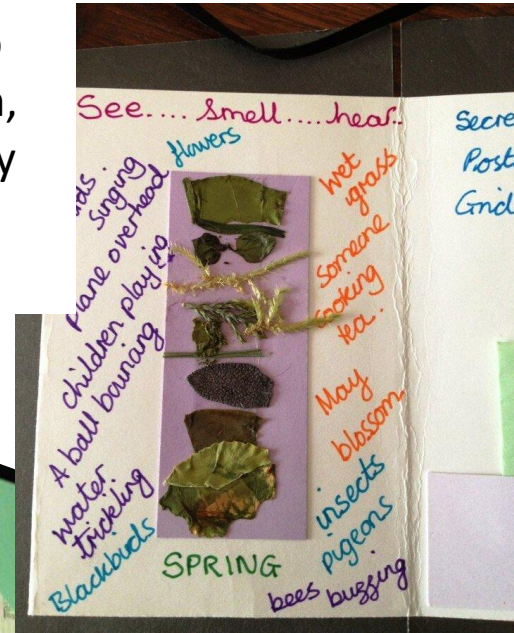 See.... Smell....hear.
flowers
singing
plane overhead
children playing
A ball bouncing
water
trickling
Blackbirds
wet
grass
Someone
cooking
tea.
May
blossom
insects
pigeons
bees buzzing
SPRING
Post
Grid